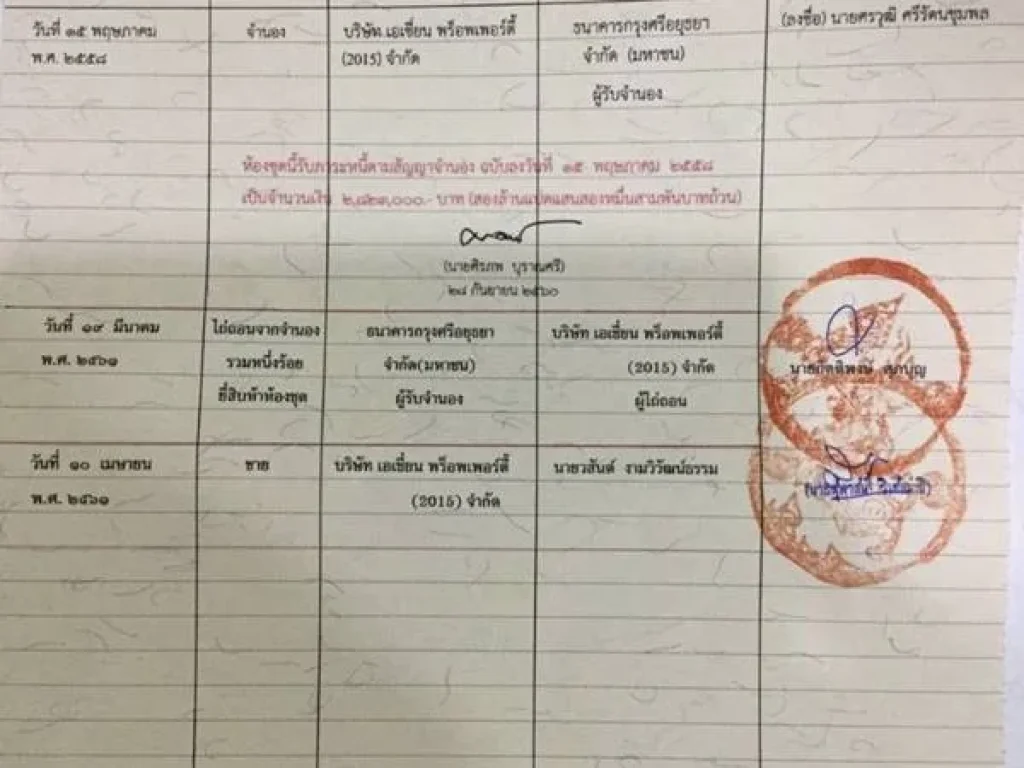 วันที่ ๑๕ พฤษภาคม
พ.ศ. ๒๕๕๘
จำนอง
บริษัท เอเชี่ยน พร็อพเพอร์ตี้
(2015) จำกัด
ธนาคารกรุงศรีอยุธยา
จำกัด (มหาชน)
ผู้รับจำนอง
(ลงชื่อ) นายศรวุฒิ ศรีรัตนชุมพล
ห้องชุดนี้รับภาระหนี้ตามสัญญาจำนอง ฉบับลงวันที่ ๑๕ พฤษภาคม ๒๕๕๘
เป็นจำนวนเงิน ๒,๘๒๓,๐๐๐.- บาท (สองล้านแปดแสนสองหมื่นสามพันบาทถ้วน)
(นายศิรภพ บุราณศรี)
๒๘ กันยายน ๒๕๖๐
วันที่ ๑๙ มีนาคม
พ.ศ. ๒๕๖๑
ไถ่ถอนจากจำนอง
รวมหนึ่งร้อย
ยี่สิบห้าห้องชุด
ธนาคารกรุงศรีอยุธยา
จำกัด(มหาชน)
ผู้รับจำนอง
บริษัท เอเชี่ยน พร็อพเพอร์ตี้
(2015) จำกัด
ผู้ไถ่ถอน
วันที่ ๑๐ เมษายน
พ.ศ. ๒๕๖๑
ขาย
บริษัท เอเชี่ยน พร็อพเพอร์ตี้
(2015) จำกัด
นายวสันต์ งามวิวัฒน์ธรรม